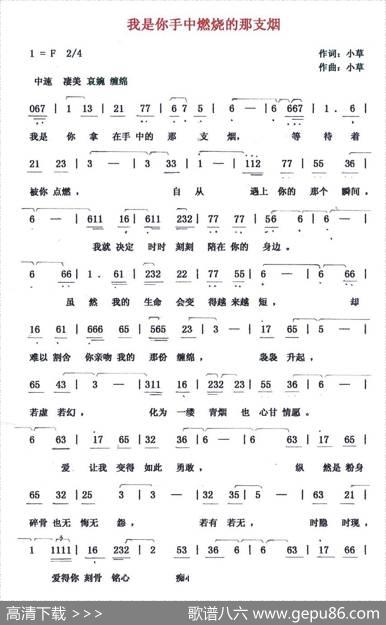 我是你手中燃烧的那支烟
1 = F 2/4
作词：小草
作曲：小草
中速 凄美 哀婉 缠绵
067 | 1 13 | 21 77 | 67 5 | 6 — | 6 067 | 1 . 6 |
我是 你 拿 在手 中的 那 支 烟， 等 待 着
21 23 | 3 — | 3 33 | 1 — | 112 77 | 55 36 |
被你 点燃， 自 从 遇上 你的 那个 瞬间。
6 — | 611 16 | 611 232 | 77 77 | 56 6 | 6 — |
我就 决定 时时 刻刻 陪在 你的 身边。
6 66 | 1 . 61 | 232 22 | 77 55 | 6 — | 6 66 |
虽 然 我的 生命 会变 得越 来越 短， 却
16 61 | 666 65 | 565 23 | 3 — | 3 17 | 65 5 |
难以 割舍 你亲吻 我的 那份 缠绵， 袅袅 升起，
65 43 | 3 — | 311 16 | 232 23 | 55 36 | 6 — |
若虚 若幻， 化为 一缕 青烟 也 心甘 情愿。
6 63 | 17 65 | 32 36 | 6 — | 6 63 | 17 65 |
爱 让我 变得 如此 勇敢， 纵 然是 粉身
65 32 | 25 3 | 3 — | 32 32 | 3 — | 63 21 |
碎骨 也无 悔无 怨， 若有 若无， 时隐 时现，
1 1111 | 16 232 | 2 53 | 36 6 | 6 — | 6 — |
爱得你 刻骨 铭心 痴
高清下载 >>>
歌谱八六 www.gepu86.com